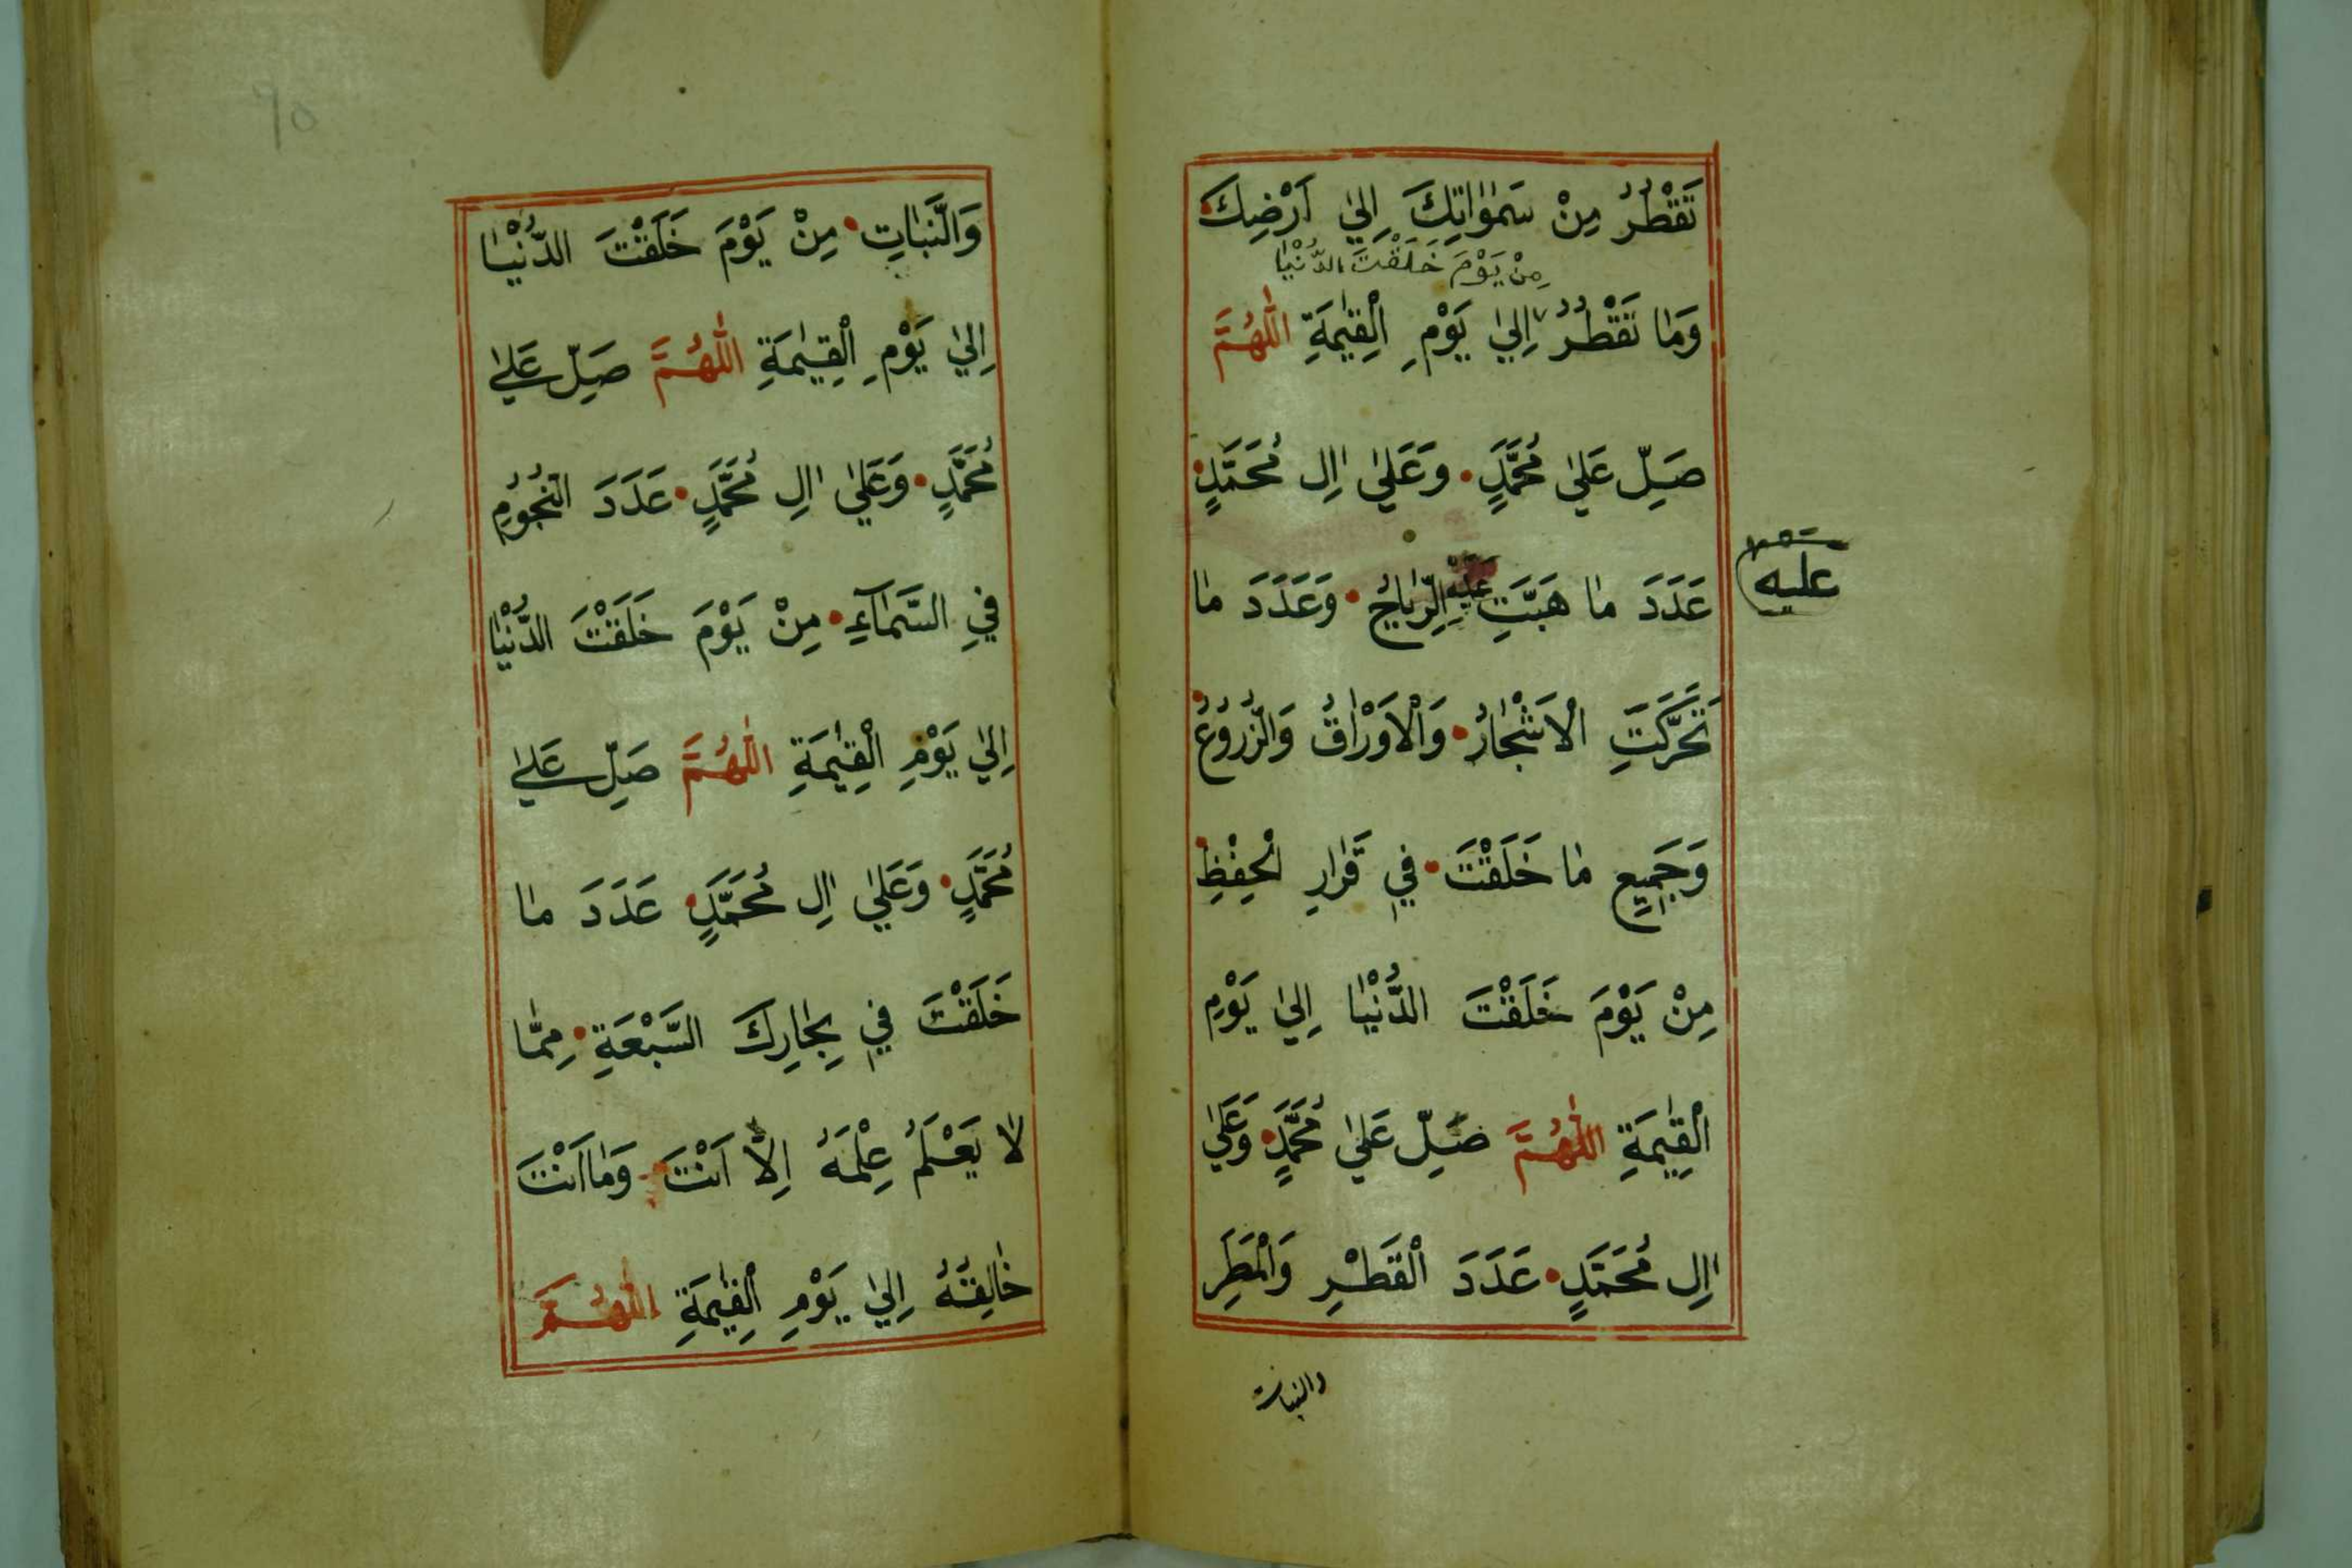 تَقْطُرُ مِنْ سَمٰوٰاتِكَ اِلىٰ اَرْضِكَ
مِنْ يَوْمَ خَلَقْتَ الدُّنْيٰا
وَمٰا تَقْطُرُ اِلىٰ يَوْمِ الْقِيٰمَةِ اَللّٰهُمَّ
صَلِّ عَلىٰ مُحَمَّدٍ وَعَلىٰ اٰلِ مُحَمَّدٍ
عَدَدَ مٰا هَبَّتِ عَلَيْهِ الرِّيٰاحُ وَعَدَدَ مٰا
عَلَيْهِ
تَحَرَّكَتِ الْاَشْجٰارُ وَالْاَوْرٰاقُ وَالزُّرُوعُ
وَجَمِيعِ مٰا خَلَقْتَ فِي قَرٰارِ الْحِفْظِ
مِنْ يَوْمَ خَلَقْتَ الدُّنْيٰا اِلىٰ يَوْمِ
الْقِيٰمَةِ اَللّٰهُمَّ صَلِّ عَلىٰ مُحَمَّدٍ وَعَلىٰ
اٰلِ مُحَمَّدٍ عَدَدَ الْقَطْرِ وَالْمَطَرِ
والنبات
٩٥
وَالنَّبٰاتِ مِنْ يَوْمَ خَلَقْتَ الدُّنْيٰا
اِلىٰ يَوْمِ الْقِيٰمَةِ اَللّٰهُمَّ صَلِّ عَلىٰ
مُحَمَّدٍ وَعَلىٰ اٰلِ مُحَمَّدٍ عَدَدَ النُّجُومِ
فِي السَّمٰآءِ مِنْ يَوْمَ خَلَقْتَ الدُّنْيٰا
اِلىٰ يَوْمِ الْقِيٰمَةِ اَللّٰهُمَّ صَلِّ عَلىٰ
مُحَمَّدٍ وَعَلىٰ اٰلِ مُحَمَّدٍ عَدَدَ مٰا
خَلَقْتَ فِي بِحٰارِكَ السَّبْعَةِ مِمّٰا
لٰا يَعْلَمُ عِلْمَهُ اِلّٰا اَنْتَ وَمٰا اَنْتَ
خٰالِقُهُ اِلىٰ يَوْمِ الْقِيٰمَةِ اَللّٰهُمَّ